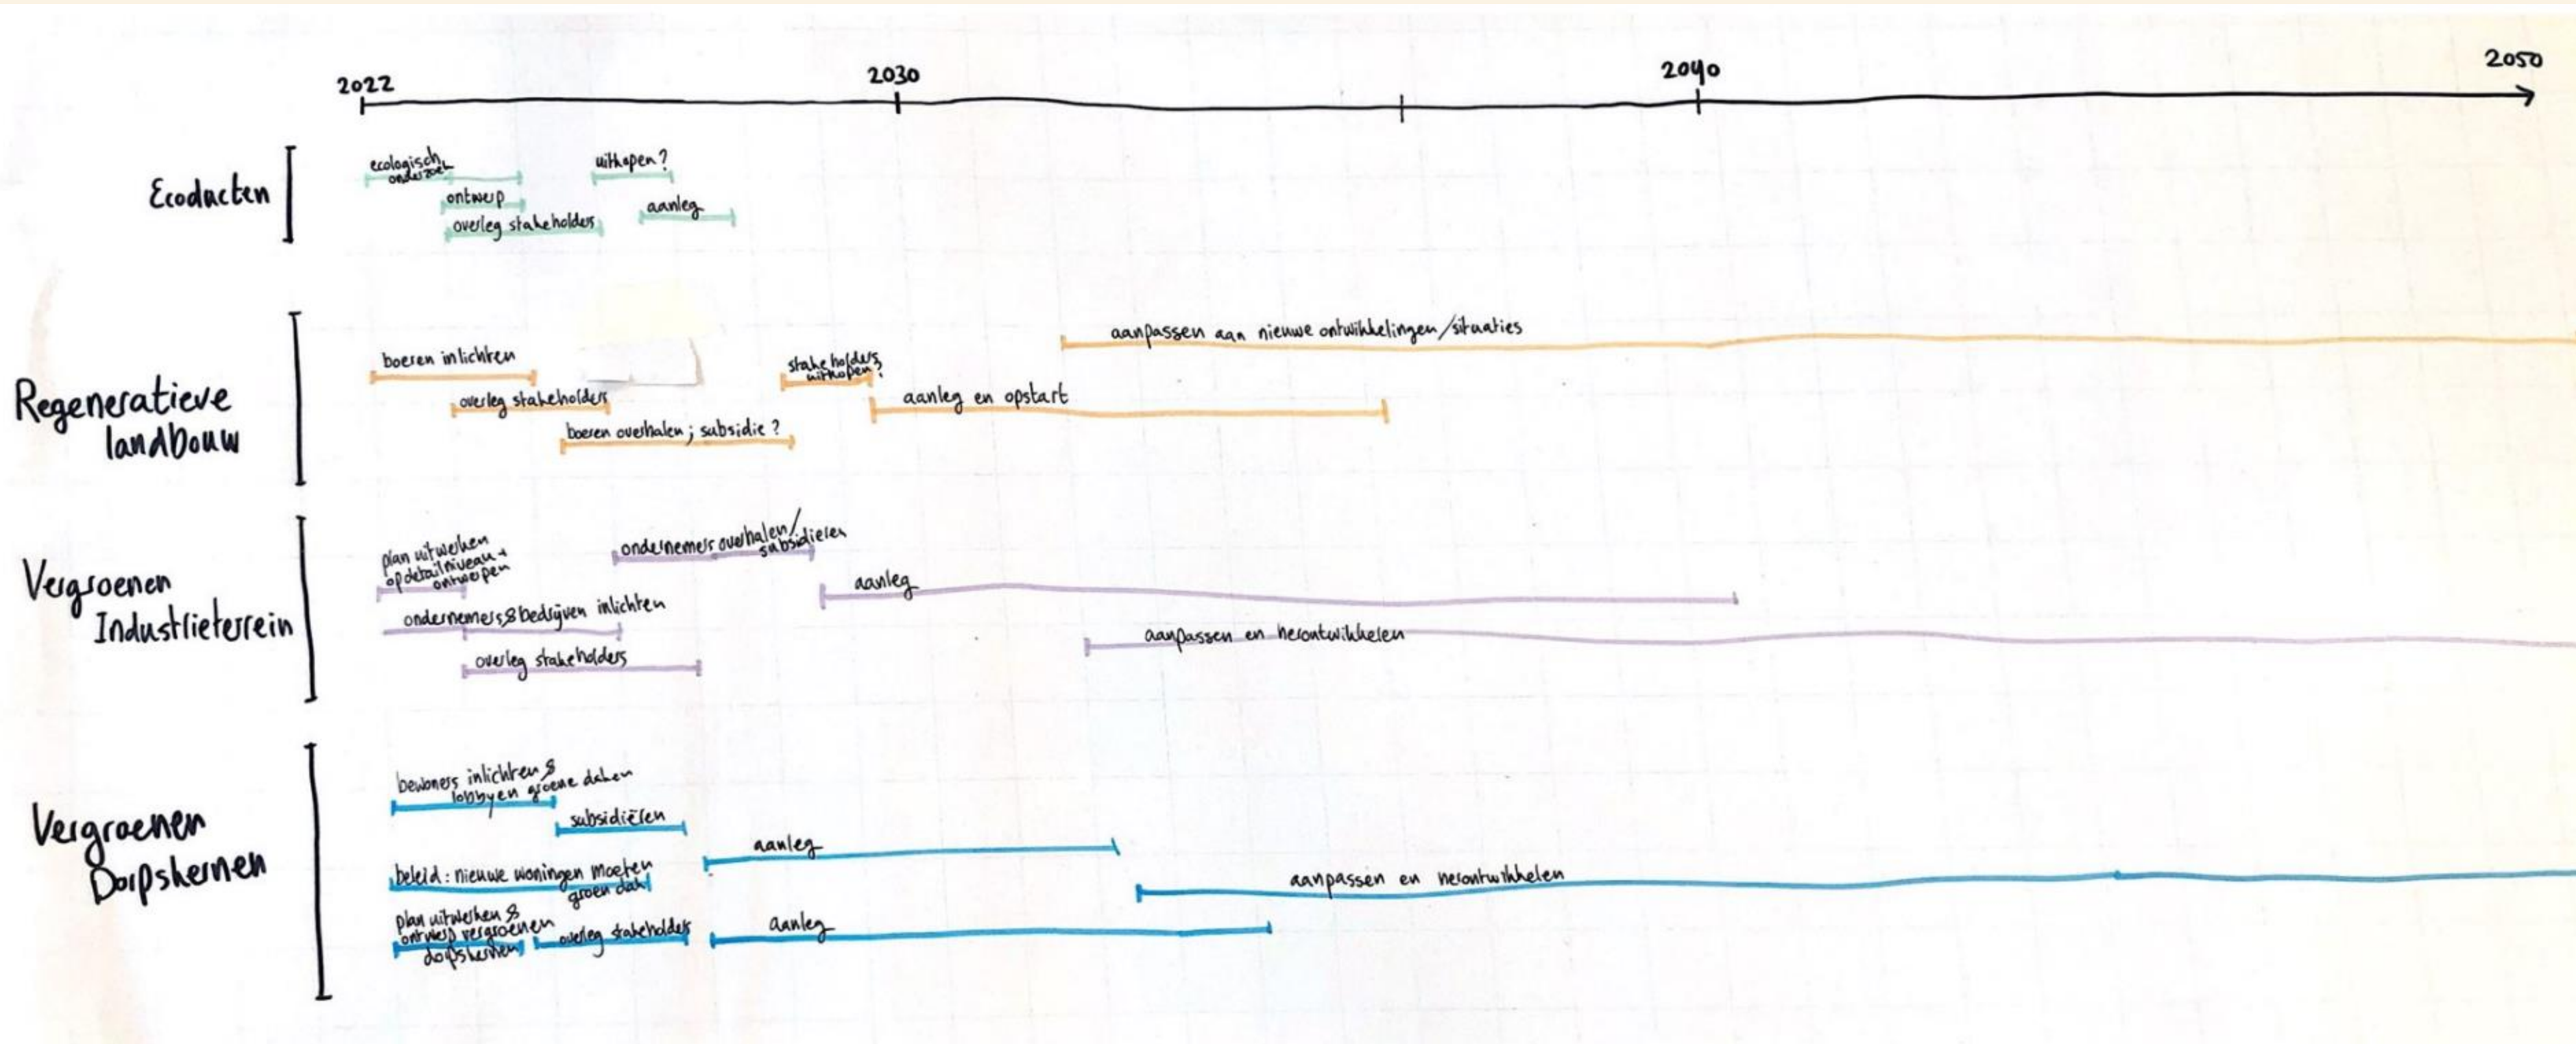 2022
2030
2040
2050
Ecoducten
ecologisch
onderzoek
ontwerp
overleg stakeholders
uitkopen?
aanleg
Regeneratieve
landbouw
boeren inlichten
overleg stakeholders
boeren overhalen; subsidie?
stakeholders
uitkopen?
aanleg en opstart
aanpassen aan nieuwe ontwikkelingen/situaties
Vergroenen
Industrieterrein
plan uitwerken
op detailniveau +
ontwerpen
ondernemers & bedrijven inlichten
overleg stakeholders
ondernemers overhalen/
subsidieren
aanleg
aanpassen en herontwikkelen
Vergroenen
Dorpskernen
bewoners inlichten &
lobbyen groene daken
subsidiëren
beleid: nieuwe woningen moeten
groen dak!
aanleg
plan uitwerken &
ontwerp vergroenen
dorpskernen
overleg stakeholders
aanleg
aanpassen en herontwikkelen